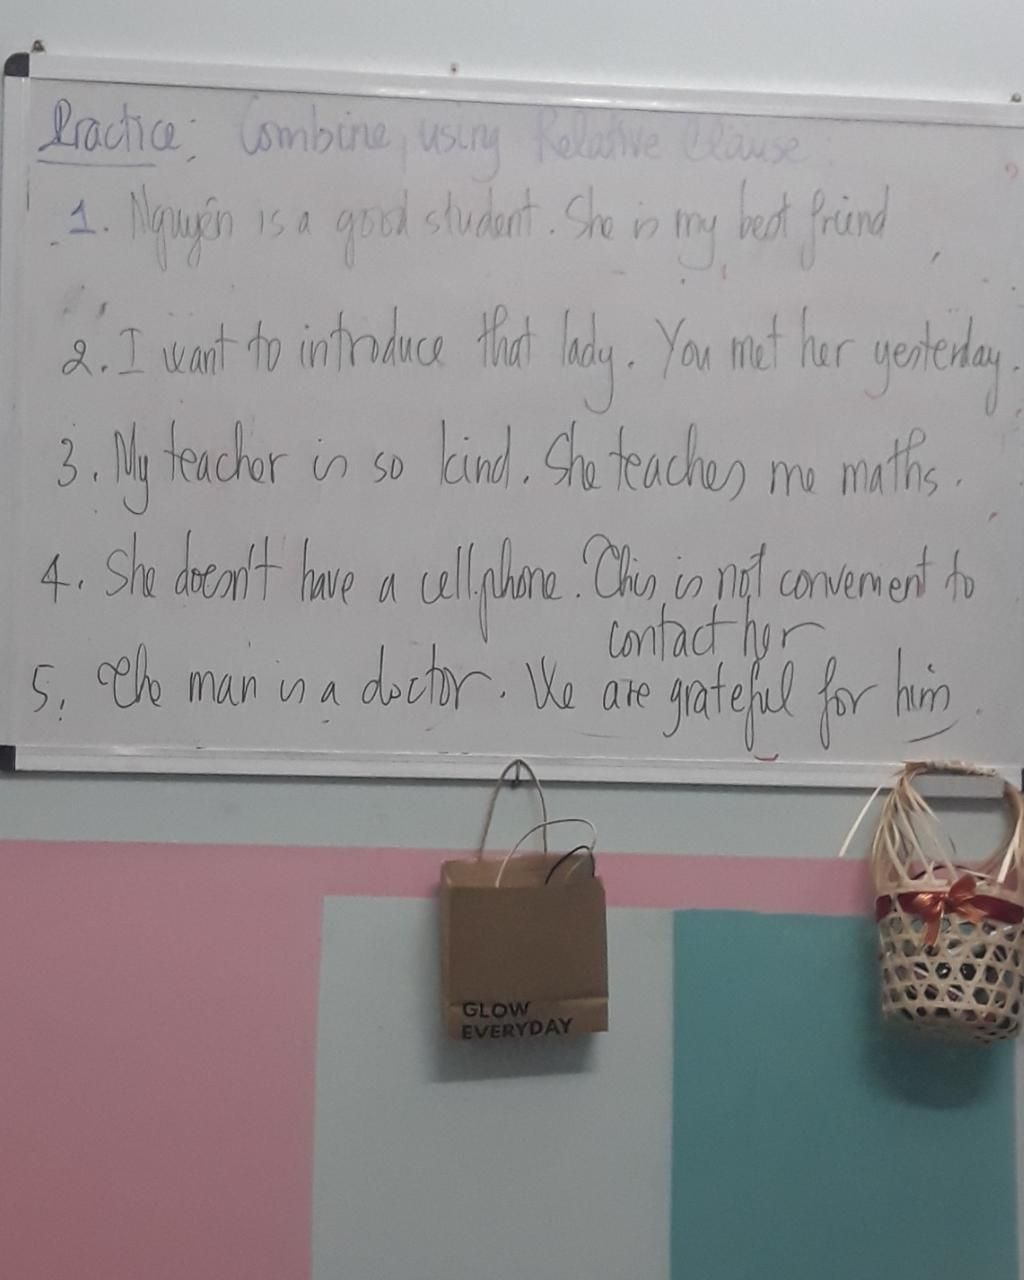 Practice: Combine, using Relative Clause:
1. Nguyên is a good student. She is my best friend
2. I want to introduce that lady. You met her yesterday.
3. My teacher is so kind. She teaches me maths.
4. She doesn't have a cell phone. This is not convenient to
contact her
5. The man is a doctor. We are grateful for him.
GLOW
EVERYDAY